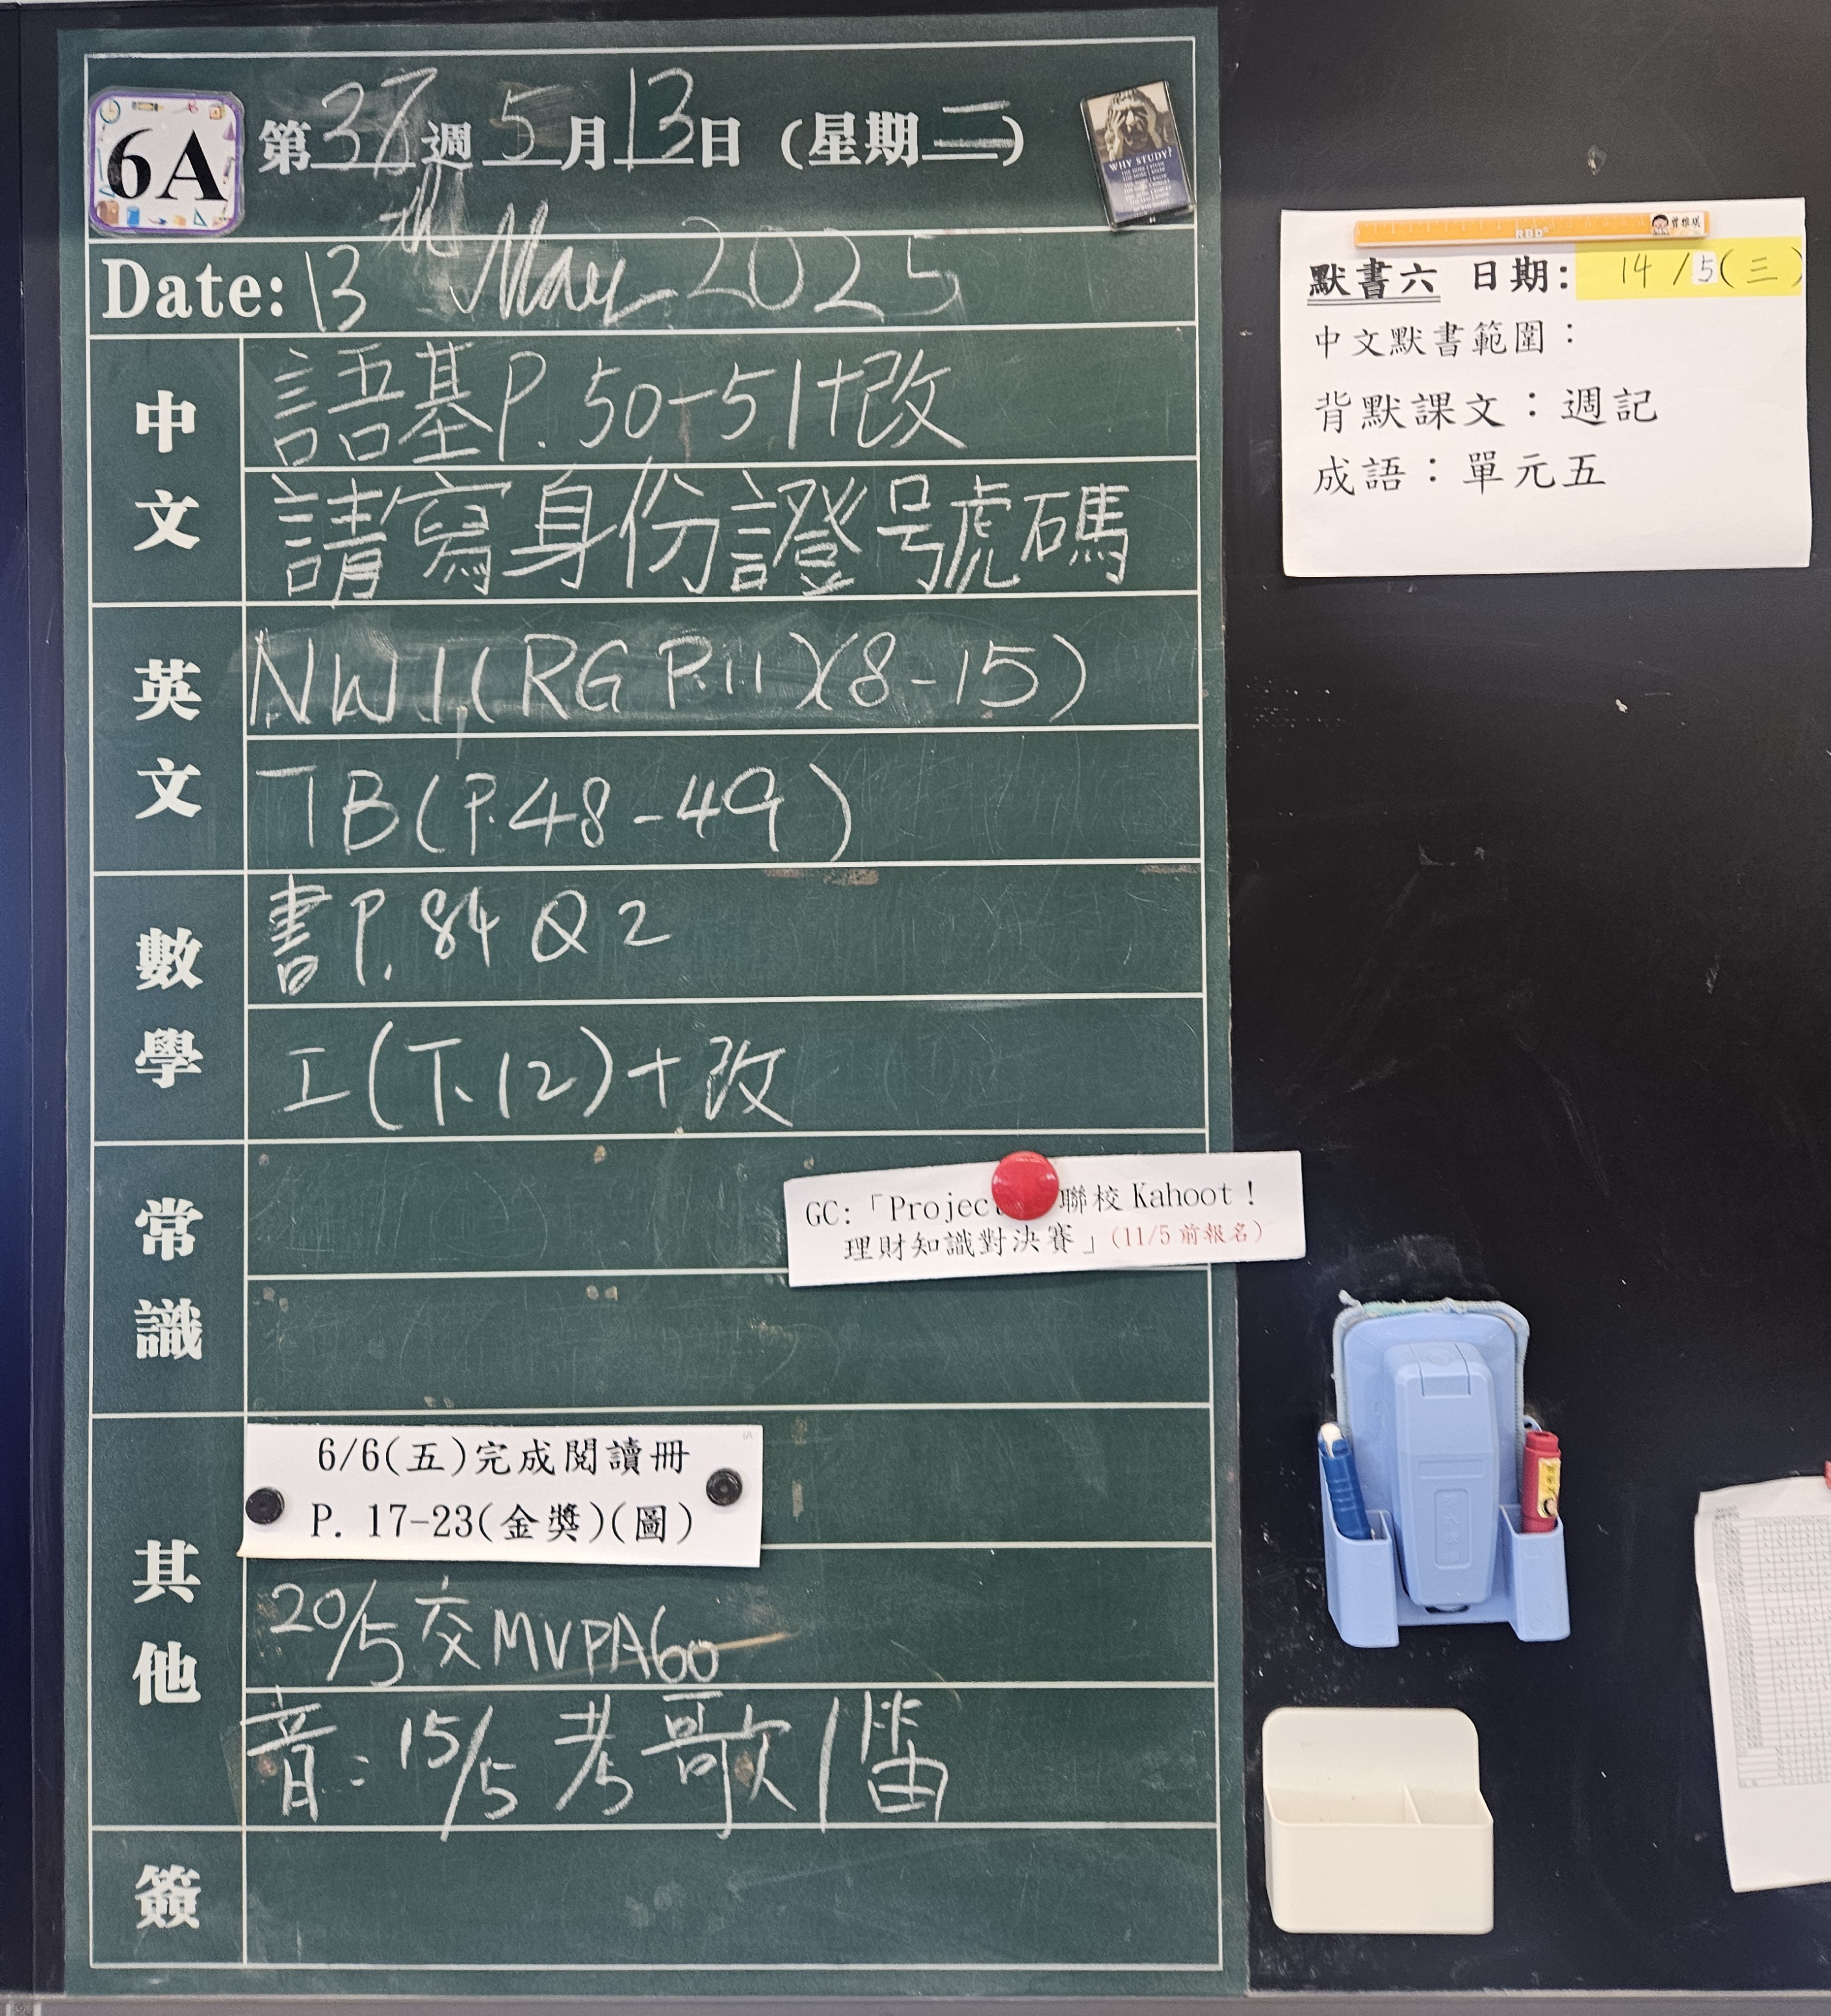 6A
第37週5月13日(星期二)
WHY STUDY?
Date: 13th May 2025
中文
語基P.50-51+改
請寫身份證號碼
英文
NW1(RG P.11)(8-15)
TB(P.48-49)
數學
書P.84 Q2
工(下.12)+改
常識
GC:「Projec 聯校Kahoot!
理財知識對決賽」(11/5前報名)
其他
6/6(五)完成閱讀冊
P. 17-23(金獎)(圖)
20/5交MVPA60
音:15/5考歌/笛
簽
RBD
默書六 日期: 14/5(三)
中文默書範圍:
背默課文:週記
成語:單元五